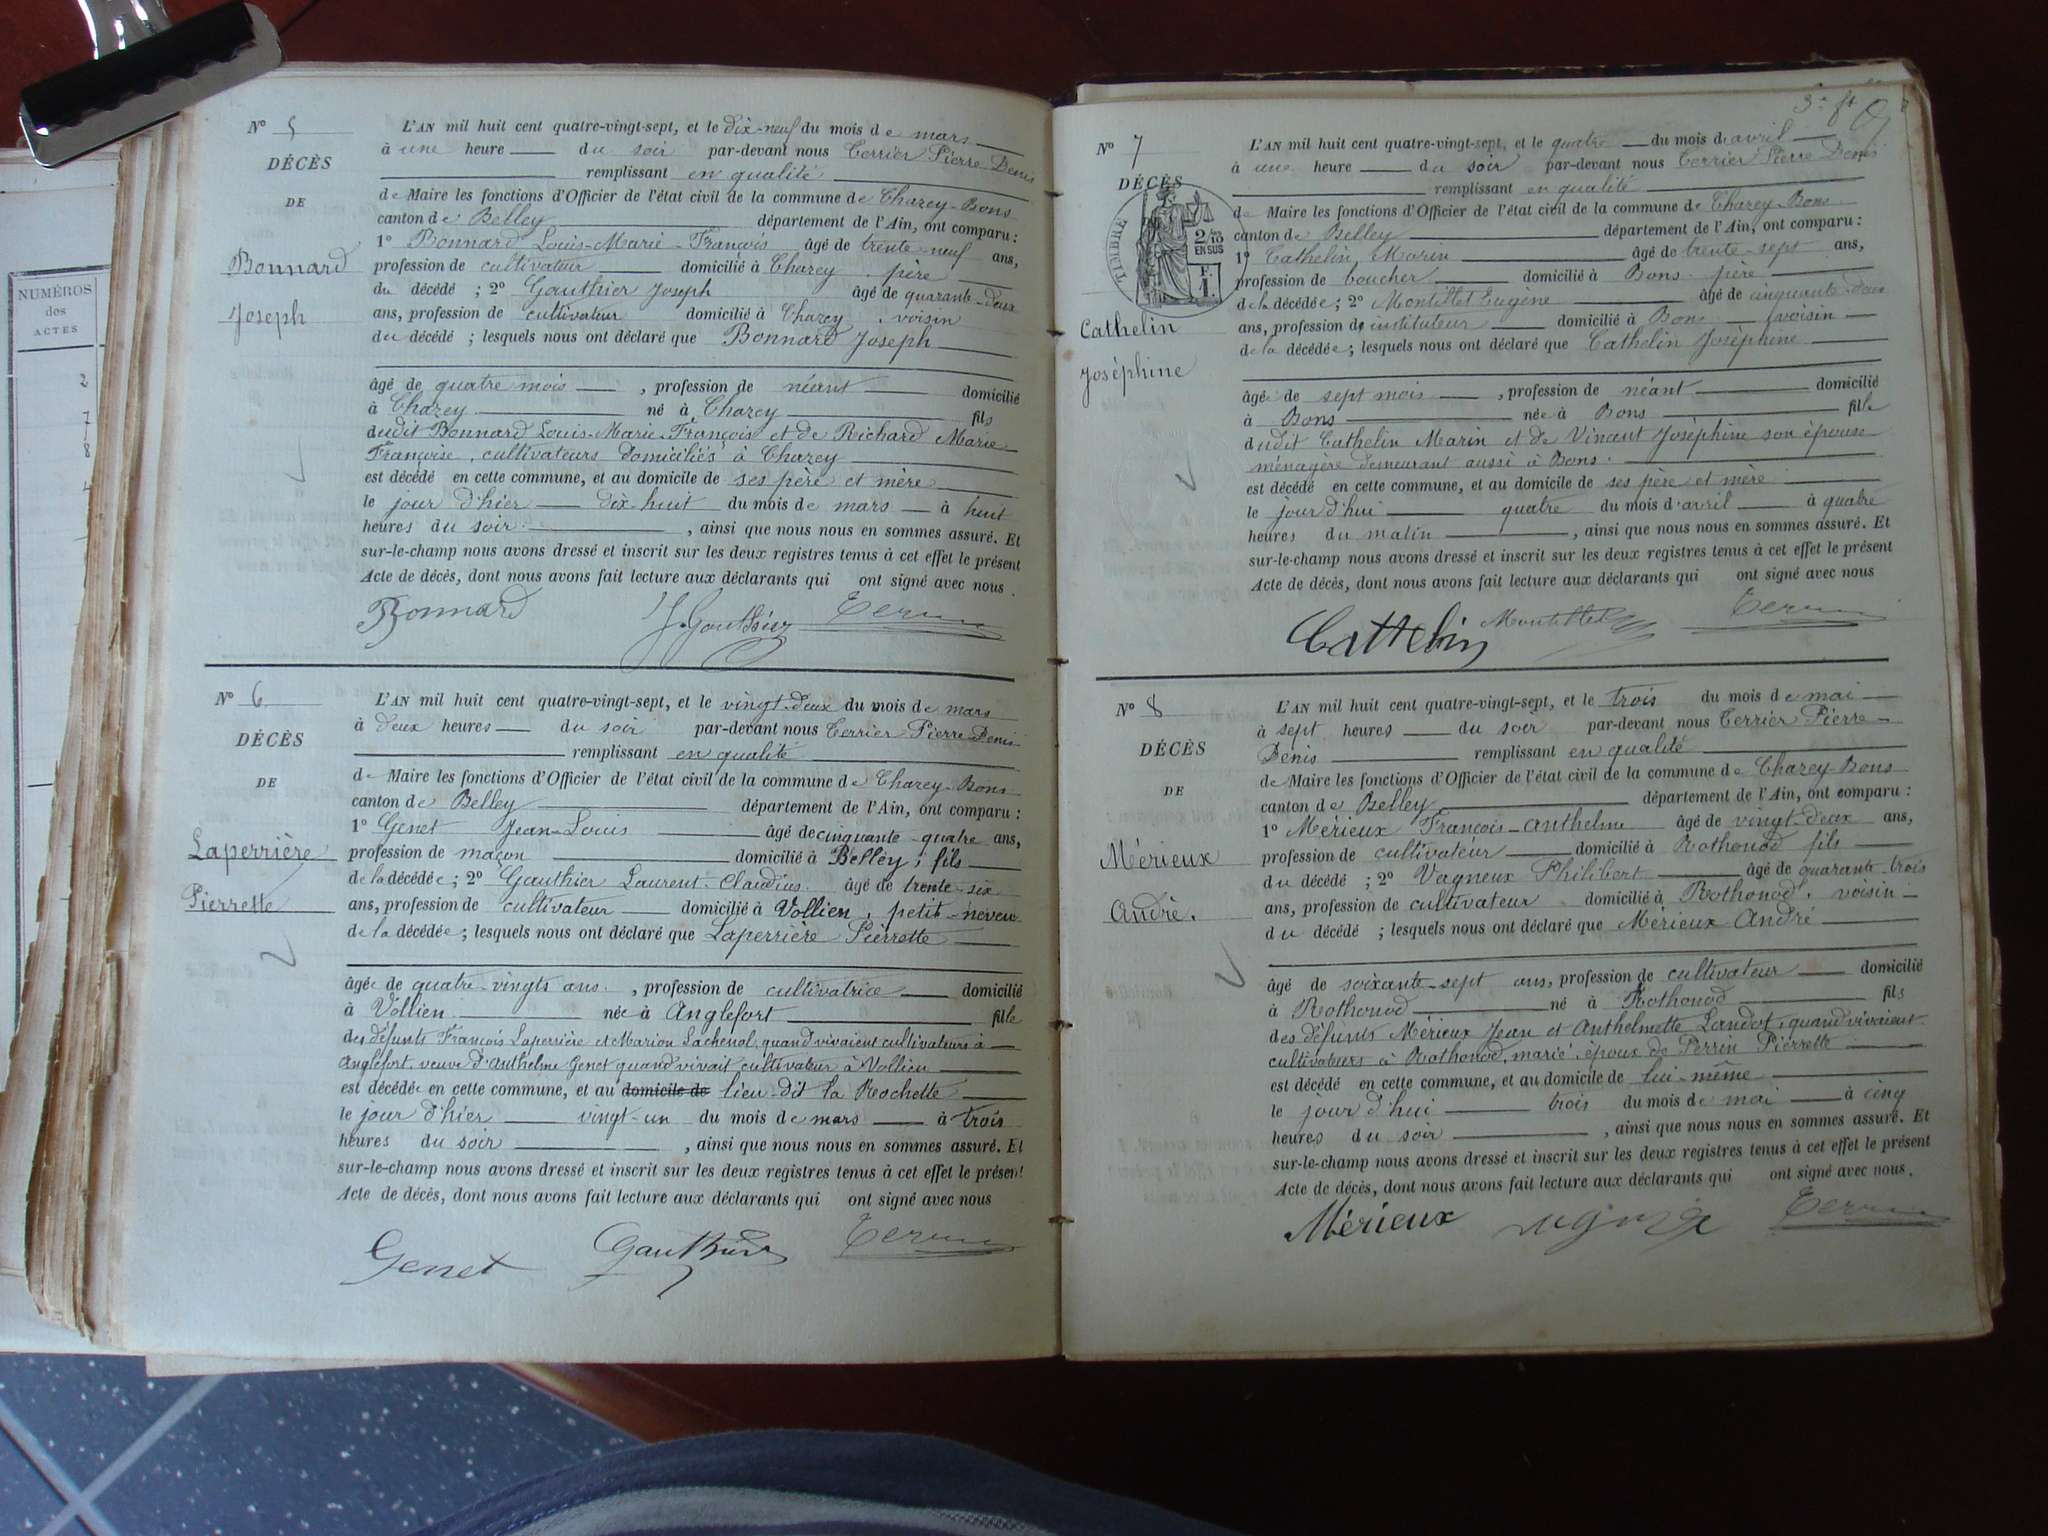 NUMÉROS
des
ACTES
2
7
8
4
N° 5
DÉCÈS
DE
Bonnard
Joseph
L'AN mil huit cent quatre-vingt-sept, et le dix-neuf du mois de mars
à une heure du soir par-devant nous Terrier Pierre Denis
remplissant en qualité
de Maire les fonctions d'Officier de l'état civil de la commune de Chazey-Bons
canton de Belley département de l'Ain, ont comparu :
1° Bonnard Louis-Marie-François âgé de trente-neuf ans,
profession de cultivateur domicilié à Chazey, père
du décédé ; 2° Gauthier Joseph âgé de quarante-deux
ans, profession de cultivateur domicilié à Chazey, voisin
du décédé ; lesquels nous ont déclaré que Bonnard Joseph
âgé de quatre mois, profession de néant domicilié
à Chazey né à Chazey fils
dudit Bonnard Louis-Marie-François et de Richard Marie
Françoise, cultivateurs domiciliés à Chazey
est décédé en cette commune, et au domicile de ses père et mère
le jour d'hier dix-huit du mois de mars à huit
heures du soir, ainsi que nous nous en sommes assuré. Et
sur-le-champ nous avons dressé et inscrit sur les deux registres tenus à cet effet le présent
Acte de décès, dont nous avons fait lecture aux déclarants qui ont signé avec nous.
Bonnard J. Gauthier Terrier
N° 6
DÉCÈS
DE
Laperrière
Pierrette
L'AN mil huit cent quatre-vingt-sept, et le vingt-deux du mois de mars
à deux heures du soir par-devant nous Terrier Pierre Denis
remplissant en qualité
de Maire les fonctions d'Officier de l'état civil de la commune de Chazey-Bons
canton de Belley département de l'Ain, ont comparu :
1° Genet Jean-Louis âgé de cinquante-quatre ans,
profession de maçon domicilié à Belley ; fils
de la décédée ; 2° Gauthier Laurent-Claudius âgé de trente-six
ans, profession de cultivateur domicilié à Vollien, petit-neveu
de la décédée ; lesquels nous ont déclaré que Laperrière Pierrette
âgée de quatre-vingts ans, profession de cultivatrice domicilié
à Vollien née à Anglefort fille
des défunts François Laperrière et Marion Lachenol, quand vivaient cultivateurs à
Anglefort, veuve d'Anthelme Genet quand vivait cultivateur à Vollien
est décédée en cette commune, et au domicile de lieu-dit la Rochette
le jour d'hier vingt-un du mois de mars à trois
heures du soir, ainsi que nous nous en sommes assuré. Et
sur-le-champ nous avons dressé et inscrit sur les deux registres tenus à cet effet le présent
Acte de décès, dont nous avons fait lecture aux déclarants qui ont signé avec nous
Genet Gauthier Terrier
N° 7
DÉCÈS
TIMBRE
2/10
EN SUS
F. 1.
Cathelin
Joséphine
L'AN mil huit cent quatre-vingt-sept, et le quatre du mois de avril
à une heure du soir par-devant nous Terrier Pierre Denis
remplissant en qualité
de Maire les fonctions d'Officier de l'état civil de la commune de Chazey-Bons
canton de Belley département de l'Ain, ont comparu :
1° Cathelin Marin âgé de trente-sept ans,
profession de boucher domicilié à Bons, père
de la décédée ; 2° Montillet Eugène âgé de cinquante-deux
ans, profession de instituteur domicilié à Bons voisin
de la décédée ; lesquels nous ont déclaré que Cathelin Joséphine
âgée de sept mois, profession de néant domicilié
à Bons née à Bons fille
dudit Cathelin Marin et de Vincent Joséphine son épouse
ménagère demeurant aussi à Bons.
est décédé en cette commune, et au domicile de ses père et mère
le jour d'hui quatre du mois d'avril à quatre
heures du matin, ainsi que nous nous en sommes assuré. Et
sur-le-champ nous avons dressé et inscrit sur les deux registres tenus à cet effet le présent
Acte de décès, dont nous avons fait lecture aux déclarants qui ont signé avec nous
Cathelin Montillet Terrier
N° 8
DÉCÈS
DE
Mérieux
André.
L'AN mil huit cent quatre-vingt-sept, et le trois du mois de mai
à sept heures du soir par-devant nous Terrier Pierre
Denis remplissant en qualité
de Maire les fonctions d'Officier de l'état civil de la commune de Chazey-Bons
canton de Belley département de l'Ain, ont comparu :
1° Mérieux François-Anthelme âgé de vingt-deux ans,
profession de cultivateur domicilié à Rothonod fils
du décédé ; 2° Vagneux Philibert âgé de quarante-trois
ans, profession de cultivateur domicilié à Rothonod, voisin
du décédé ; lesquels nous ont déclaré que Mérieux André
âgé de soixante-sept ans, profession de cultivateur domicilié
à Rothonod né à Rothonod fils
des défunts Mérieux Jean et Anthelmette Landot, quand vivaient
cultivateurs à Rothonod, marié, époux de Perrin Pierrette
est décédé en cette commune, et au domicile de lui-même
le jour d'hui trois du mois de mai à cinq
heures du soir, ainsi que nous nous en sommes assuré. Et
sur-le-champ nous avons dressé et inscrit sur les deux registres tenus à cet effet le présent
Acte de décès, dont nous avons fait lecture aux déclarants qui ont signé avec nous.
Mérieux Terrier